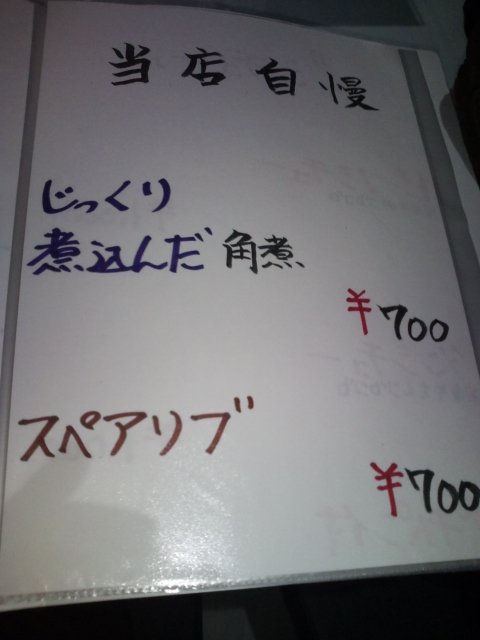 当店自慢
じっくり
煮込んだ 角煮
¥700
スペアリブ
¥700